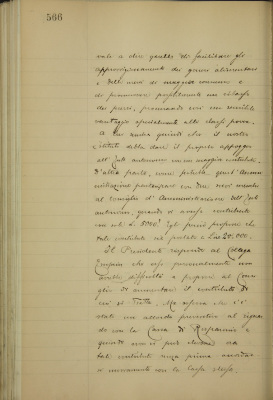 566
vole a dire quello di facilitare gli
approvvigionamenti dei generi alimentari
e delle merci di maggior consumo e
di promuovere possibilmente un ribasso
dei prezzi, procurando così un sensibile
vantaggio specialmente alle classi povere.
A me sembra quindi che il nostro
Istituto debba dare il proprio appoggio
all' Ente autonomo con un maggior contributo.
D'altra parte, come potrebbe quest' Ammi
nistrazione partecipare con due suoi membri
al consiglio d'Amministrazione dell' Ente
autonomo, quando si avesse contribuito
con sole L. 5000? Egli perciò propone che
detto contributo sia portato a Lire 25.000.
Il Presidente risponde al Collega
che egli personalmente non
avrebbe difficoltà a proporre al Consi
glio di aumentare il contributo di
cui si tratta. Ma osserva che c'è
stato un accordo preventivo al riguar
do con la Cassa di Risparmio e
quindi non si può elevare
tal contributo senza prima
con la Cassa stessa.